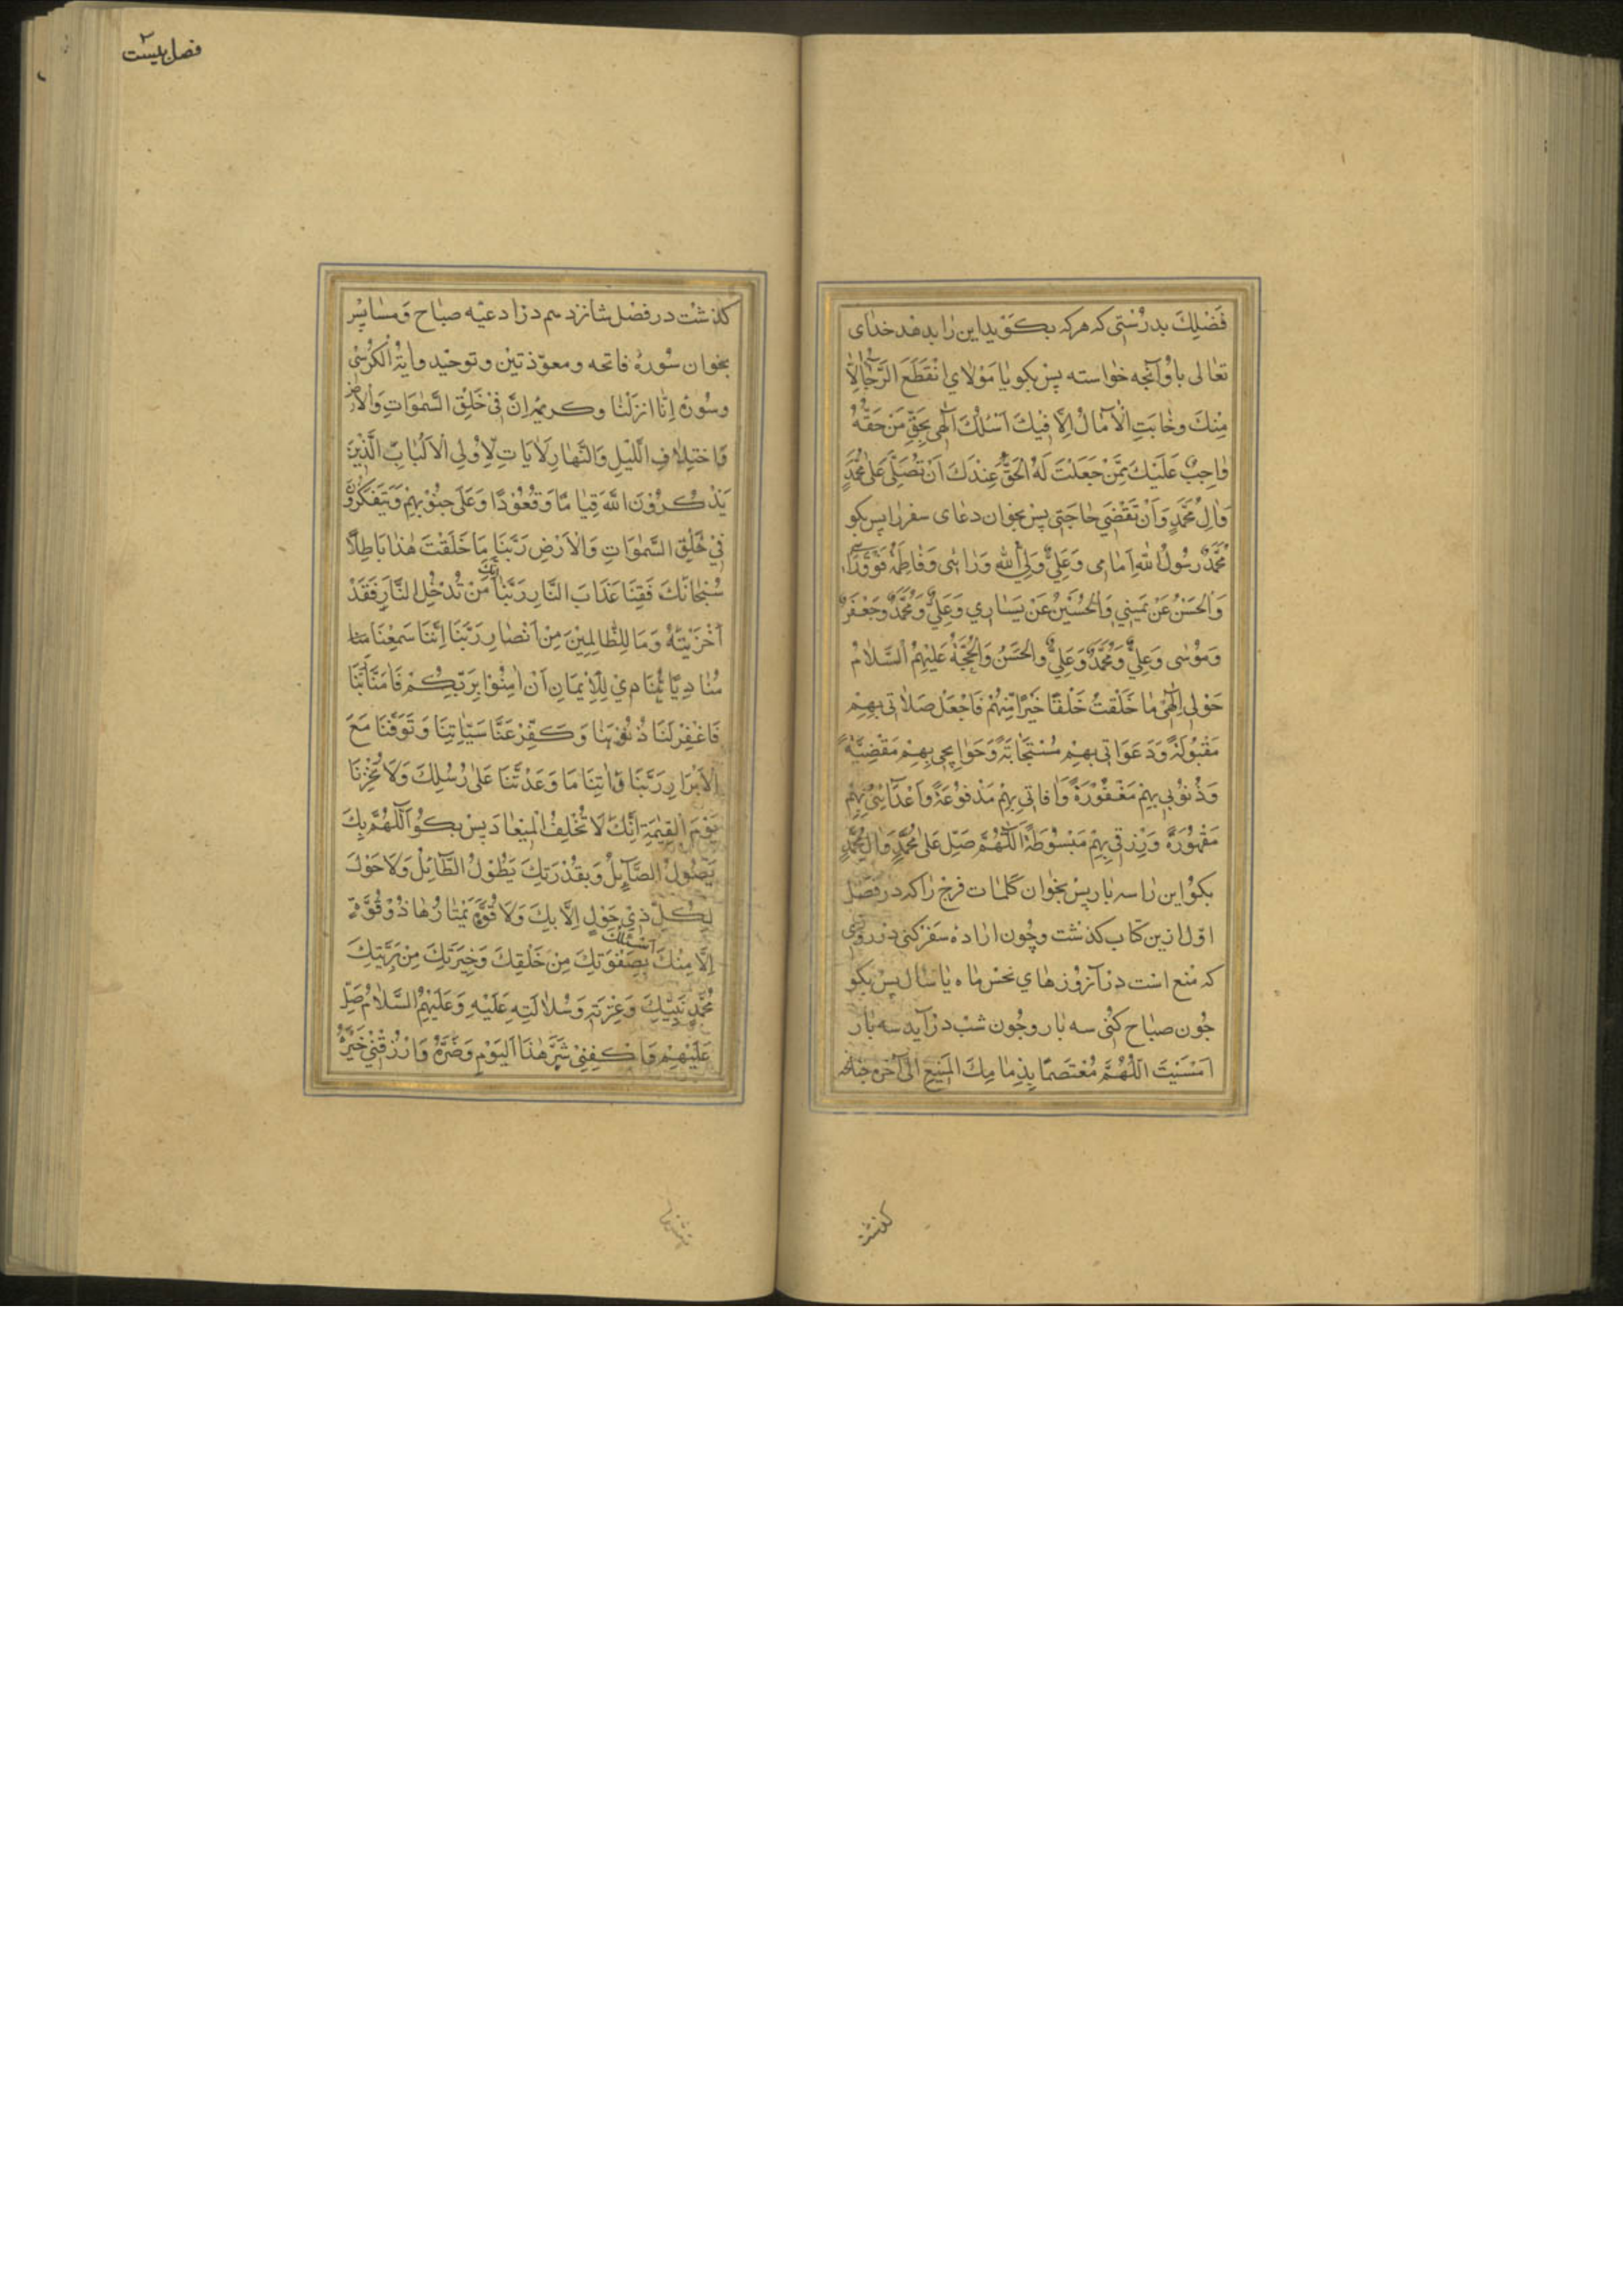 فَضْلِكَ بدرُسْتی که هرکه بکَوْید این رٰا بدهد خدٰای
تعٰالی باوُ آنچه خوٰاسته پسْ بکو یٰا مَوْلٰايَ انْقَطَعَ الرَّجٰآءُ اِلّٰا
مِنْكَ وخٰابَتِ الْاٰمٰالُ اِلَّا فيْكَ اَسْئَلُكَ اِلٰهی بِحَقِّ مَنْ حَقُّهُ
وٰاجِبٌ عَلَيْكَ مِمَّنْ جَعَلْتَ لَهُ الْحَقَّ عِنْدَكَ اَنْ تُصَلِّيَ عَلىٰ مُحَمَّدٍ
وَاٰلِ مُحَمَّدٍ وَاَنْ تَقْضِيَ حٰاجَتی پسْ بخوٰان دعٰای سفر رٰا پس بکو
مُحَمَّدٌ رَسُولُ اللهِ اَمٰامی وَعَلِيٌّ وَلِيُّ اللهِ وَرٰائی وَفٰاطِمَةُ فَوْقَ رَأسی
وَالْحَسَنُ عَنْ يَمينِي وَالْحُسَيْنُ عَنْ يَسٰاري وَعَلِيٌّ وَمُحَمَّدٌ وَجَعْفَرٌ
وَمُوْسٰی وَعَلِيٌّ وَمُحَمَّدٌ وَعَلِيٌّ والْحَسَنُ وَالْحُجَّةُ عَلَيْهِمُ السَّلٰامُ
حَوْلی اِلٰهیْ مٰا خَلَقْتَ خَلْقًا خَيْرًا مِنْهُمْ فَاجْعَلْ صَلٰاتی بِهِمْ
مَقْبُوْلَةً وَدَعَوٰاتی بِهِمْ مُسْتَجٰابَةً وَحَوٰايِجی بِهِمْ مَقْضِيَّةً
وَذُنُوْبی بِهِمْ مَغْفُوْرَةً وَاٰفاتی بِهِمْ مَدْفُوْعَةً وَاَعْدٰآئیْ بِهِمْ
مَقْهُوْرَةً وَرِزْقی بِهِمْ مَبْسُوْطَةً اَللّٰهُمَّ صَلِّ عَلىٰ مُحَمَّدٍ وَاٰلِ مُحَمَّدٍ
بکوُ این رٰا سه بٰار پسْ بخوٰان کلمٰات فرج رٰا که در فصْل
اوّل ازین کتاب کذشت وچُون ارٰاده سَفَر کنی در روزی
که مُنع است در آن روُزهٰاي نحس مٰاه یٰا سٰال پس بکو
چُون صبٰاح کُنی سه بٰار وچُون شبْ در آید سه بٰار
اَمْسَيْتَ اَللّٰهُمَّ مُعْتَصِمًا بِذِمٰامِكَ الْمَنيْعِ الی آخره چنانچه
کذشت
فصل بیست ۲
کذشت در فصْل شانزدهم در ادعیّه صبٰاح وَمسٰا پسْ
بخوان سُورۀ فاتحه ومعوّذتیْن وتوحیْد واٰیةُ الْکُرْسیْ
وسُورۀ اِنّٰا انزلنٰا وکریمۀ اِنَّ فيْ خَلْقِ السَّمٰوَاتِ وَالْاَرْضِ
وَاخْتِلٰافِ الَّليْلِ وَالنَّهٰارِ لَاٰيَاتٍ لِاُولِی الْاَلْبٰابِ الَّذِيْنَ
يَذْكُرُوْنَ اللهَ قِيٰامًا وَقُعُوْدًا وَعَلىٰ جُنُوْبِهِمْ وَيَتَفَكَّرُوْنَ
فيْ خَلْقِ السَّمٰوَاتِ وَالْاَرْضِ رَبَّنَا مٰا خَلَقْتَ هٰذٰا بَاطِلًا
سُبْحٰانَكَ فَقِنَا عَذَابَ النَّارِ رَبَّنَا اِنَّكَ مَنْ تُدْخِلِ النَّارَ فَقَدْ
اَخْزَيْتَهُ وَمٰا لِلظّٰالِمِيْنَ مِنْ اَنْصٰارٍ رَبَّنَا اِنَّنَا سَمِعْنَا
مُنٰادِيًا يُنٰادِيْ لِلْاِيْمَانِ اَنْ اٰمِنُوْا بِرَبِّكُمْ فَاٰمَنَّا رَبَّنَا
فَاغْفِرْ لَنَا ذُنُوْبَنٰا وَكَفِّرْ عَنَّا سَيِّاٰتِنَا وَتَوَفَّنَا مَعَ
الْاَبْرَارِ رَبَّنَا وَاٰتِنَا مَا وَعَدْتَّنَا عَلىٰ رُسُلِكَ وَلَا تُخْزِنَا
يَوْمَ الْقِيٰمَةِ اِنَّكَ لَا تُخْلِفُ الْمِيْعٰادَ پس بکوُ اَللّٰهُمَّ بِكَ
يَصُوْلُ الصَّآئِلُ وَبِقُدْرَتِكَ يَطُوْلُ الطَّآئِلُ وَلَا حَوْلَ
لِكُلِّ ذِيْ حَوْلٍ اِلَّا بِكَ وَلَا قُوَّةَ يَمْتَارُهَا ذُوْ قُوَّةٍ
اِلَّا مِنْكَ اَسْئَلُكَ بِصَفْوَتِكَ مِنْ خَلْقِكَ وَخِيَرَتِكَ مِنْ بَرِيَّتِكَ
مُحَمَّدٍ نَبِيِّكَ وَعِتْرَتِهِ وَسُلٰالَتِهِ عَلَيْهِ وَعَلَيْهِمُ السَّلٰامُ صَلِّ
عَلَيْهِمْ وَاكْفِنِيْ شَرَّ هٰذَا الْيَوْمِ وَضَرَّهُ وَارْزُقْنِيْ خَيْرَهُ